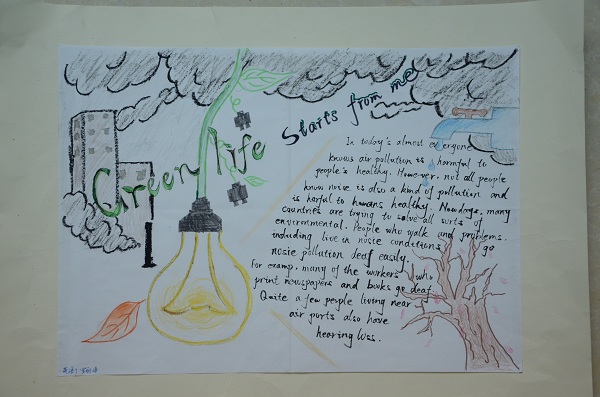 Green life
Starts from me
In today's almost everyone
knows air pollution is harmful to
people's healthy. However, not all people
know noise is also a kind of pollution and
is harful to humans healthy. Nowdays, many
countries are trying to solve all sorts of
enviornmental. People who walk and problems.
including live in nosie conditions go
nosie pollution deaf easily.
For examp, many of the workers who
print newspapers and books go deaf
Quite a few people living near
air ports also have
hearing loss.